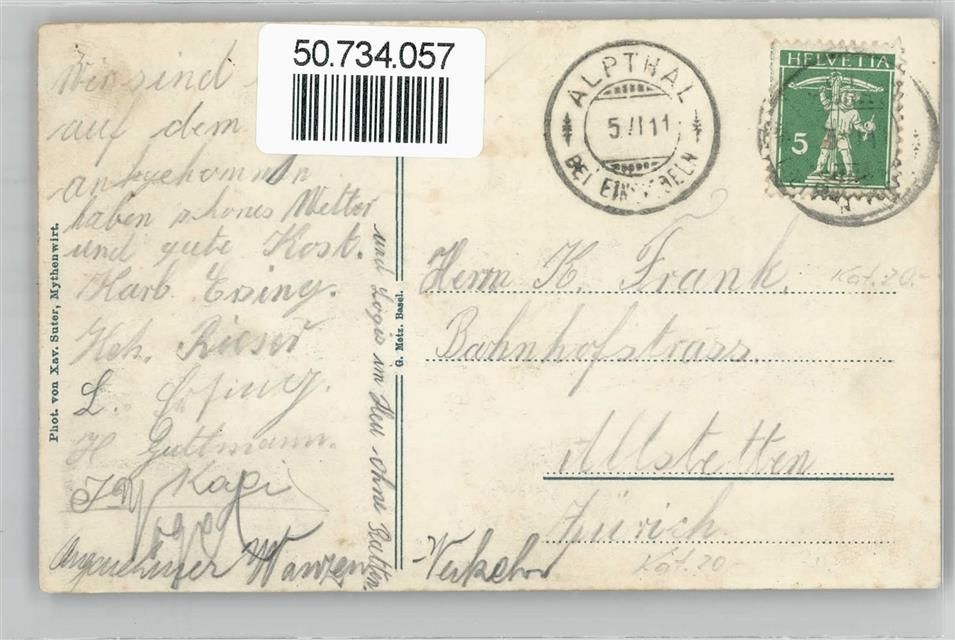 50.734.057
Wir sind
auf dem
angekommen
haben schönes Wetter
und gute Kost.
Karl Ersing.
Hch. Rieser
L. Ersing.
H Guttmann.
Kägi
Angenehmer Wanzen-Verkehr
und Logis im Heu ohne Ratten.
Phot. von Xav. Suter, Mythenwirt.
G. Metz. Basel.
ALPTHAL
5 VII 11
BEI EINSIEDELN
HELVETIA
5
Herrn K. Frank.
Kat. 20.-
Bahnhofstrass
Altstetten
Zürich.
Kat. 20.-